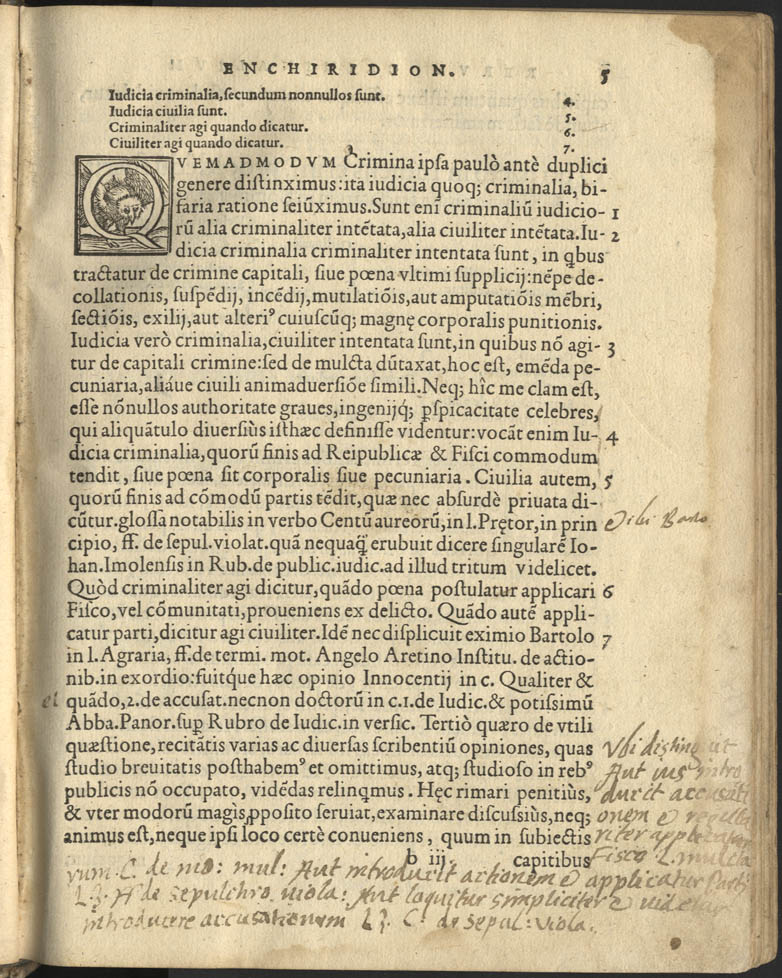 ENCHIRIDION. 5
Iudicia criminalia, secundum nonnullos sunt. 4.
Iudicia ciuilia sunt. 5.
Criminaliter agi quando dicatur. 6.
Ciuiliter agi quando dicatur. 7.
QVEMADMODVM Crimina ipsa paulò antè duplici
genere distinximus: ita iudicia quoq; criminalia, bi-
faria ratione seiũximus. Sunt eni͂ criminaliũ iudicio- 1
rũ alia criminaliter intẽtata, alia ciuiliter intẽtata. Iu- 2
dicia criminalia criminaliter intentata sunt, in qbus
tractatur de crimine capitali, siue pœna vltimi supplicij: nẽpe de-
collationis, suspẽdij, incẽdij, mutilatiõis, aut amputatiõis mẽbri,
sectiõis, exilij, aut alteriꝰ cuiuscũq; magnę corporalis punitionis.
Iudicia verò criminalia, ciuiliter intentata sunt, in quibus nõ agi- 3
tur de capitali crimine: sed de mulcta dũtaxat, hoc est, emẽda pe-
cuniaria, aliáue ciuili animaduersiõe simili. Neq; hîc me clam est,
esse nõnullos authoritate graues, ingenijq́; ꝑspicacitate celebres,
qui aliquãtulo diuersiùs isthæc definisse videntur: vocãt enim Iu- 4
dicia criminalia, quorũ finis ad Reipublicæ & Fisci commodum
tendit, siue pœna sit corporalis siue pecuniaria. Ciuilia autem, 5
quorũ finis ad cõmodũ partis tẽdit, quæ nec absurdè priuata di-
cũtur. glossa notabilis in verbo Centũ aureorũ, in l. Prętor, in prin
cipio, ff. de sepul. violat. quã nequaq̃ erubuit dicere singularẽ Io-
han. Imolensis in Rub. de public. iudic. ad illud tritum videlicet.
Quòd criminaliter agi dicitur, quãdo pœna postulatur applicari 6
Fisco, vel cõmunitati, proueniens ex delicto. Quãdo autẽ appli-
catur parti, dicitur agi ciuiliter. Idẽ nec displicuit eximio Bartolo 7
in l. Agraria, ff. de termi. mot. Angelo Aretino Institu. de actio-
nib. in exordio: fuitq́ue hæc opinio Innocentij in c. Qualiter &
et quãdo, 2. de accusat. necnon doctorũ in c. 1. de Iudic. & potissimũ
Abba. Panor. suꝑ Rubro de Iudic. in versic. Tertiò quæro de vtili
quæstione, recitãtis varias ac diuersas scribentiũ opiniones, quas
studio breuitatis posthabemꝰ et omittimus, atq; studioso in rebꝰ
publicis nõ occupato, vidẽdas relinqmus. Hęc rimari penitiùs,
& vter modorũ magis ꝓposito seruiat, examinare discussiùs, neq;
animus est, neque ipsi loco certè conueniens, quum in subiectis
b iij capitibus
ibi Barto
Vbi distinguit
Aut ius intro
ducit accusati
onem
riter applicatur
Fisco L. mulcta
rum. C. de mo: mul: Aut introducit actionem applicatur parti
L. 3. ff de sepulchro. viola: Aut loquitur simpliciter videtur
introducere accusationem L 3. C. de sepul: viola.